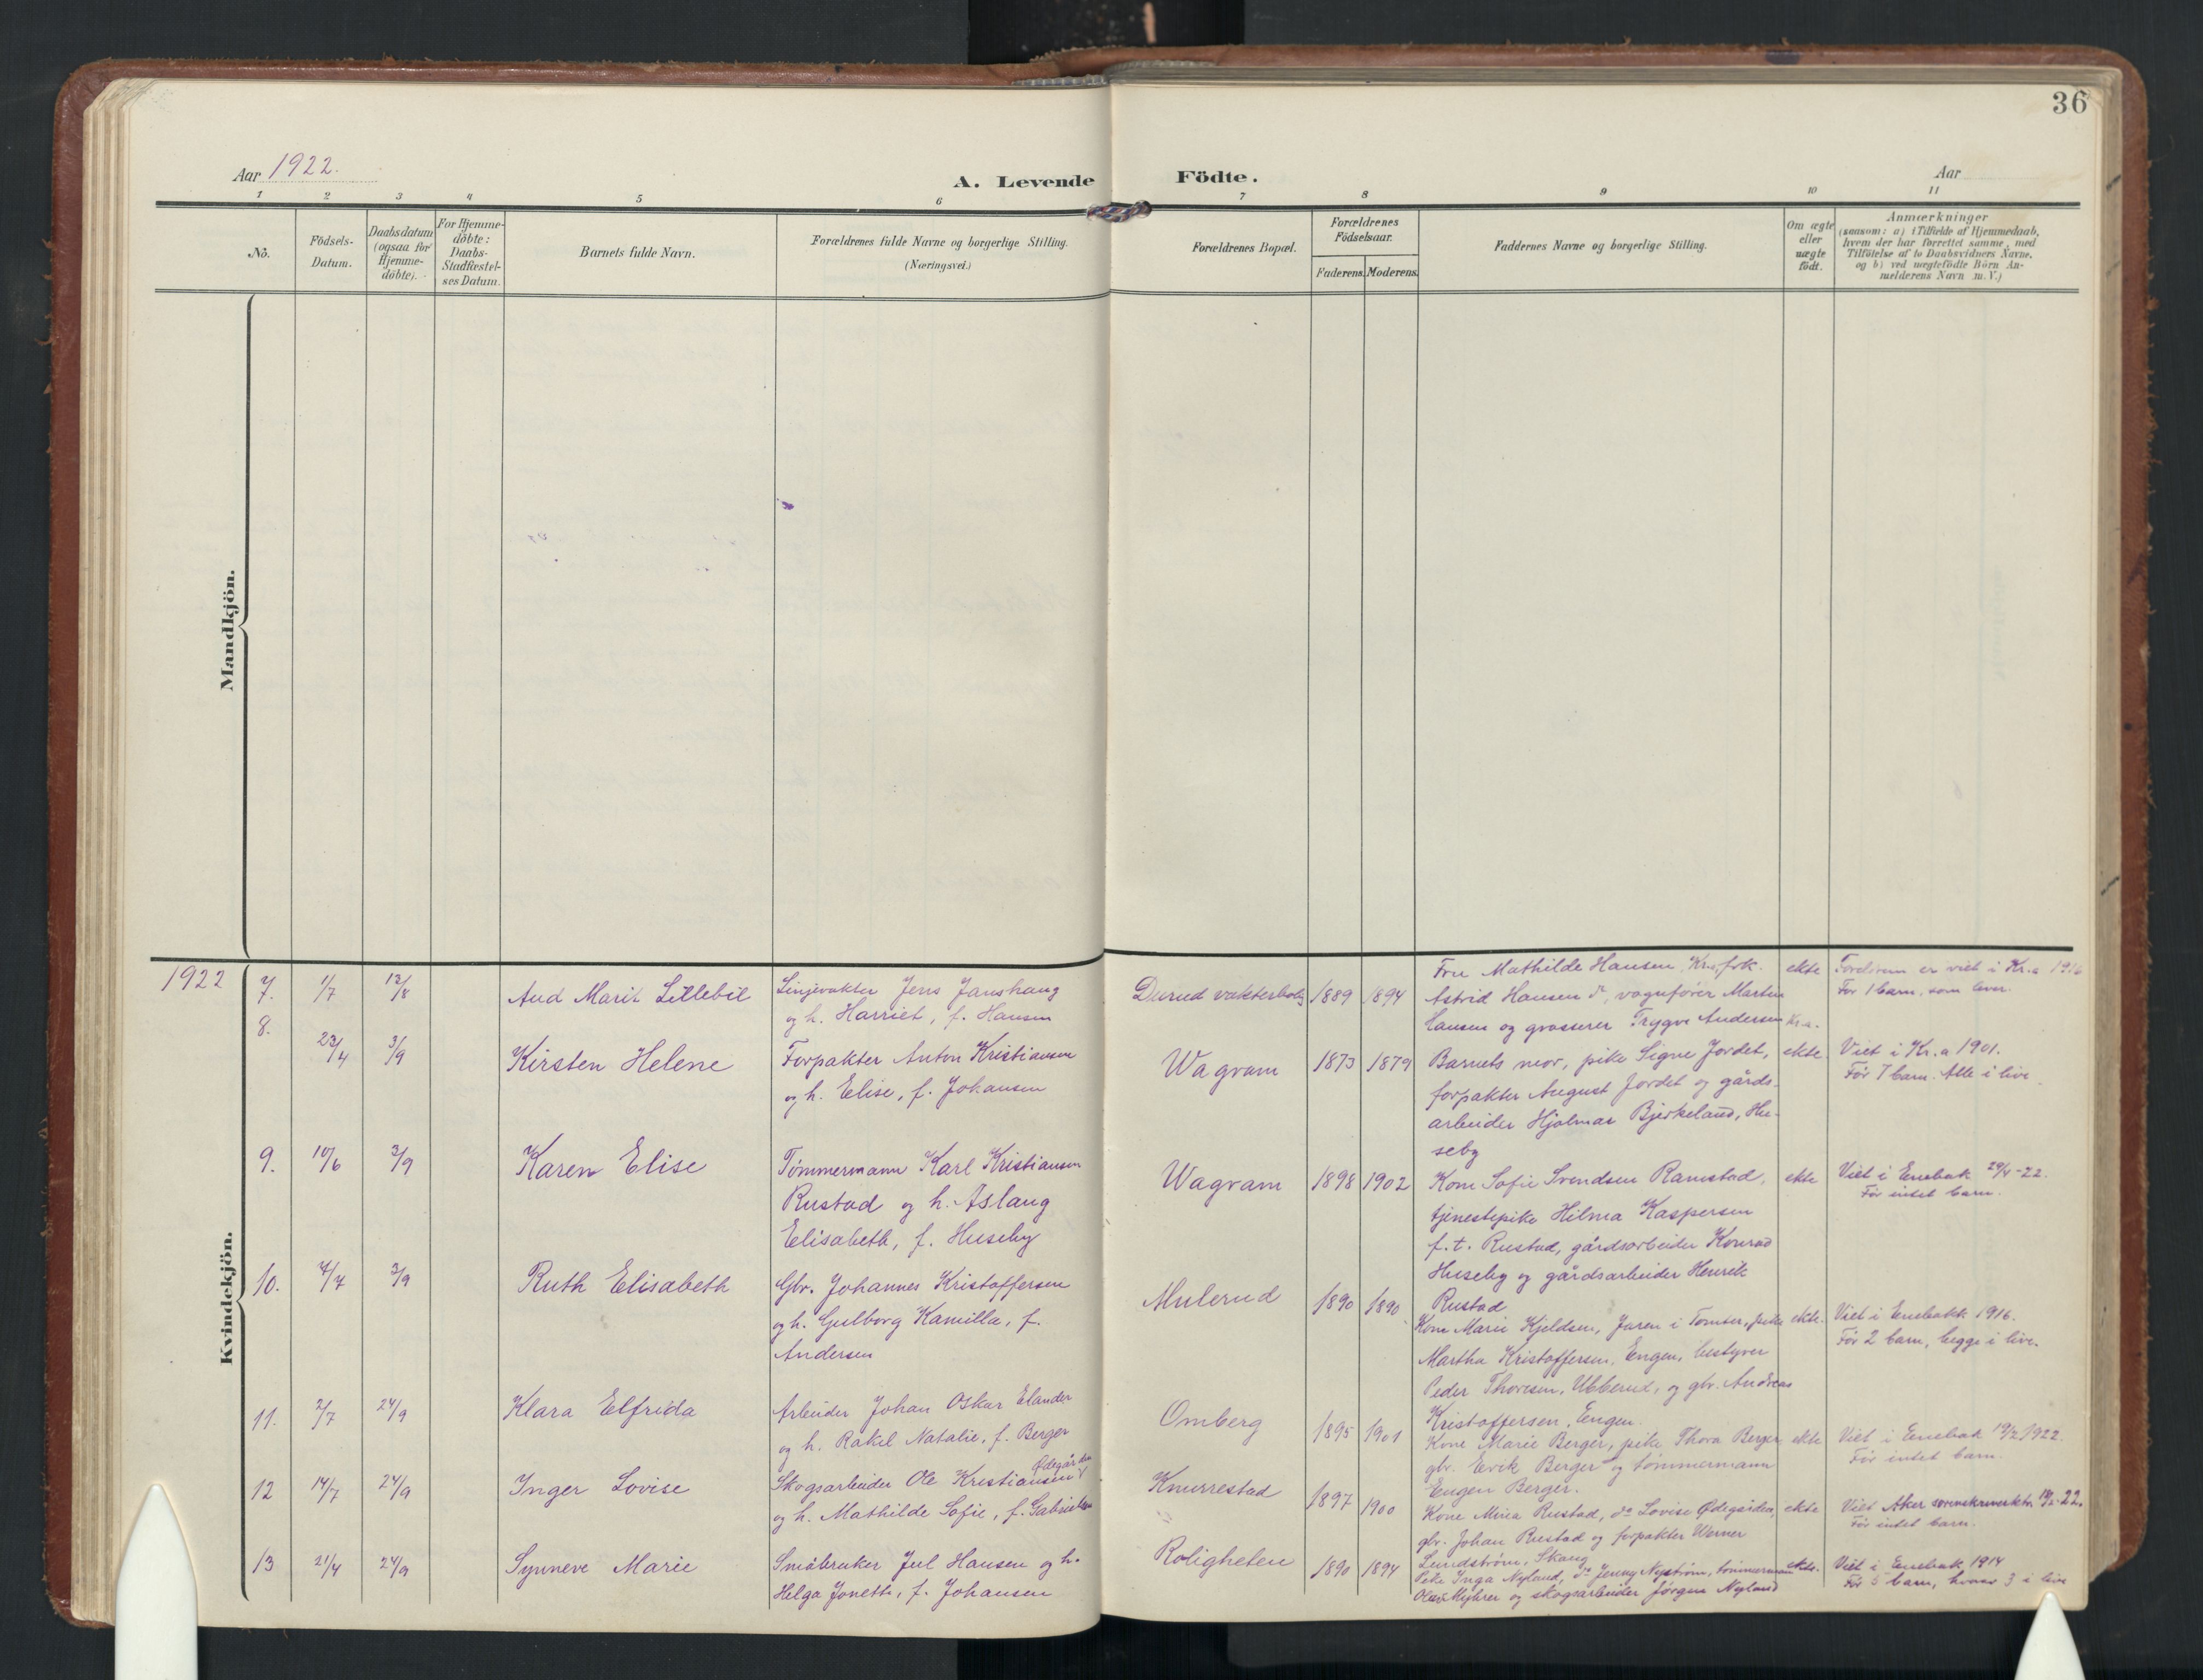 36
Aar 1922.
A. Levende Födte.
Aar
1 2 3 4 5 6 7 8 9 10 11
No.
Födsels-Datum.
Daabsdatum (ogsaa for Hjemme-döbte).
For Hjemme-döbte: Daabs-Stadfæstel-ses Datum.
Barnets fulde Navn.
Forældrenes fulde Navne og borgerlige Stilling. (Næringsvei.)
Forældrenes Bopæl.
Forældrenes Födselsaar.
Faderens. Moderens.
Faddernes Navne og borgerlige Stilling.
Om ægte eller uægte födt.
Anmærkninger
(saasom: a) i Tilfælde af Hjemmedaab, hvem der har forrettet samme, med Tilföielse af to Daabsvidners Navne. og b) ved uægtefödte Börn Anmelderens Navn m. V.)
Mandkjön.
Kvindekjön.
1922
7. 1/7 13/8 Aud Marit Lillebil
Linjevakter Jens Janshaug
og h. Harriet, f. Hansen
Durud vakterbolig 1889 1894
Fru Mathilde Hansen, Kr.a, frk.
Astrid Hansen do, vognfører Martin
Hansen og grosserer Trygve Andersen Kr.a.
ekte
Foreldrene er viet i Kr.a 1916
Før 1 barn, som lever.
8. 23/4 3/9 Kirsten Helene
Forpakter Anton Kristiansen
og h. Elise, f. Johansen
Wagram 1873 1879
Barnets mor, pike Signe Jordet,
forpakter August Jordet og gårds-
arbeider Hjalmar Bjerkeland, Hu-
seby
ekte
Viet i Kr.a 1901.
Før 7 barn. Alle i live.
9. 10/6 3/9 Karen Elise
Tømmermann Karl Kristiansen
Rustad og h. Aslaug
Elisabeth, f. Huseby
Wagram 1898 1902
Kone Sofie Svendsen Ramstad,
tjenestepike Hilma Kaspersen
f. t. Rustad, gårdsarbeider Konrad
Huseby og gårdsarbeider Henrik
Rustad
ekte
Viet i Enebak 29/4-22.
Før intet barn.
10. 4/7 3/9 Ruth Elisabeth
Gbr. Johannes Kristoffersen
og h. Gulborg Kamilla, f.
Andersen
Mulerud 1890 1890
Kone Marie Kjeldsen, Jaren i Tomter, pike
Martha Kristoffersen, Engen, bestyrer
Peder Thoresen, Ubberud, og gbr. Andreas
Kristoffersen, Engen.
ekte.
Viet i Enebakk 1916.
Før 2 barn, begge i live.
11. 2/7 24/9 Klara Elfrida
Arbeider Johan Oskar Elander
og h. Rakel Natalie, f. Berger
Omberg 1895 1901
Kone Marie Berger, pike Thora Berger
gbr. Erik Berger og tømmermann
Eugen Berger.
ekte
Viet i Enebak 19/2 1922
Før intet barn.
12 14/7 24/9 Inger Lovise
Skogsarbeider Ole Kristiansen Ødegården
og h. Mathilde Sofie, f. Gabrielsen
Knurrestad 1897 1900
Kone Mina Rustad, do Lovise Ødegården,
gbr. Johan Rustad og forpakter Werner
Lundstrøm, Skaug
ekte
Viet Aker sorenskriverktr 22.
Før intet barn.
13 21/4 24/9 Synneve Marie
Småbruker Jul Hansen og h.
Helga Jonette, f. Johansen
Roligheten 1890 1894
Pike Inga Nyland, do Jenny Nystrøm, tømmermann
Olav Myhrer og skogsarbeider Jørgen Nyland
ekte.
Viet i Enebak 1914
Før 5 barn, hvorav 3 i live